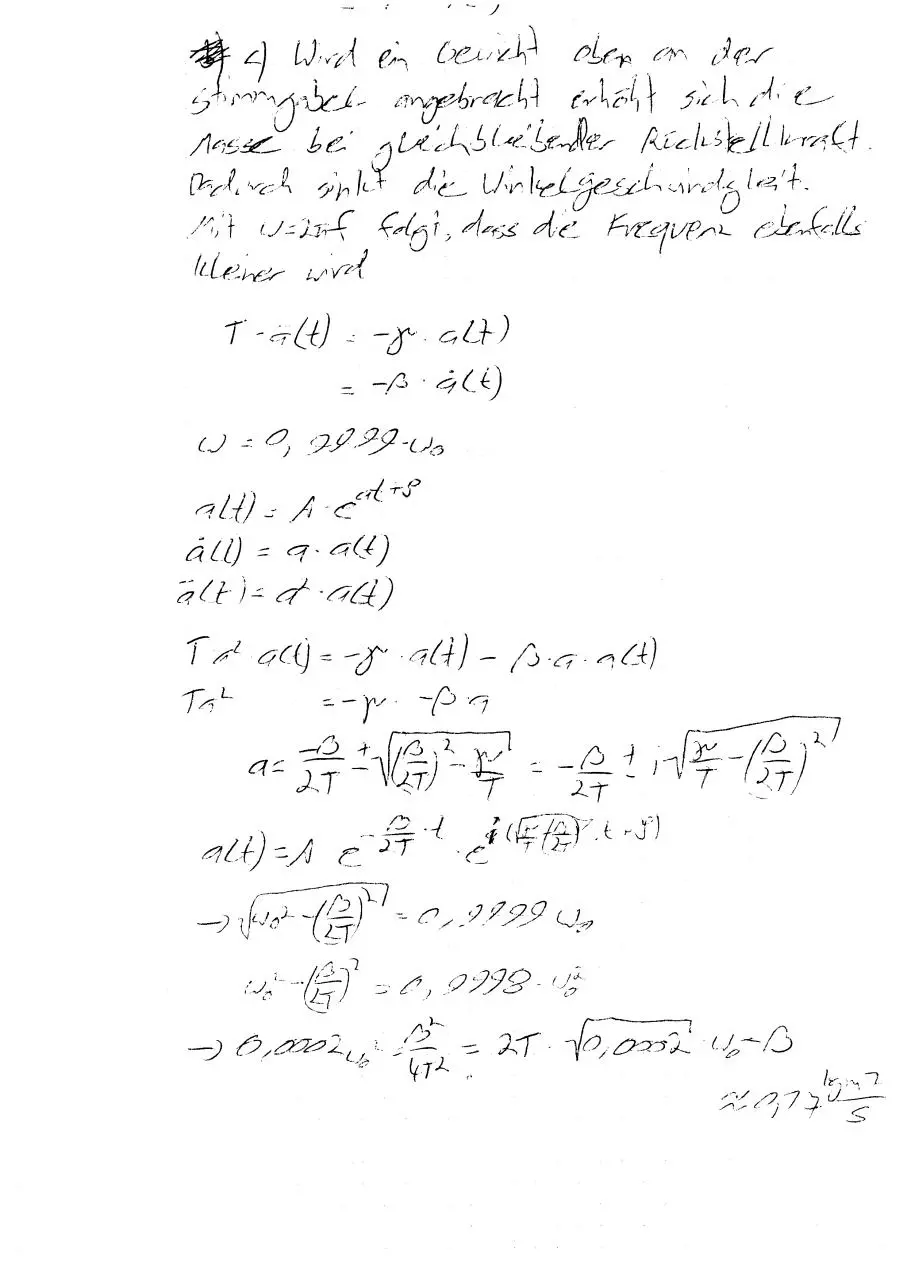 c) Wird ein Gewicht oben an der
Stimmgabel angebracht erhöht sich die
Masse bei gleichbleibender Rückstellkraft.
Dadurch sinkt die Winkelgeschwindigkeit.
Mit ω=2πf folgt, dass die Frequenz ebenfalls
kleiner wird
T · ä(t) = -γ · a(t)
= -β · ȧ(t)
ω = 0,9999·ω₀
a(t) = A · e^(at+φ)
ȧ(t) = a · a(t)
ä(t) = a² · a(t)
T a² a(t) = -γ · a(t) - β · a · a(t)
Ta² = -γ · -β · a
a = -β/2T ± √((β/2T)² - γ/T) = -β/2T ± i √(γ/T - (β/2T)²)
a(t) = A e^(-β/2T · t) · e^(i(√(γ/T - (β/2T)²) · t + φ))
→ √(ω₀² - (β/2T)²) = 0,9999 ω₀
ω₀² - (β/2T)² = 0,9998 · ω₀²
→ 0,0002 ω₀² = β²/4T² = 2T · √0,0002 · ω₀ = β